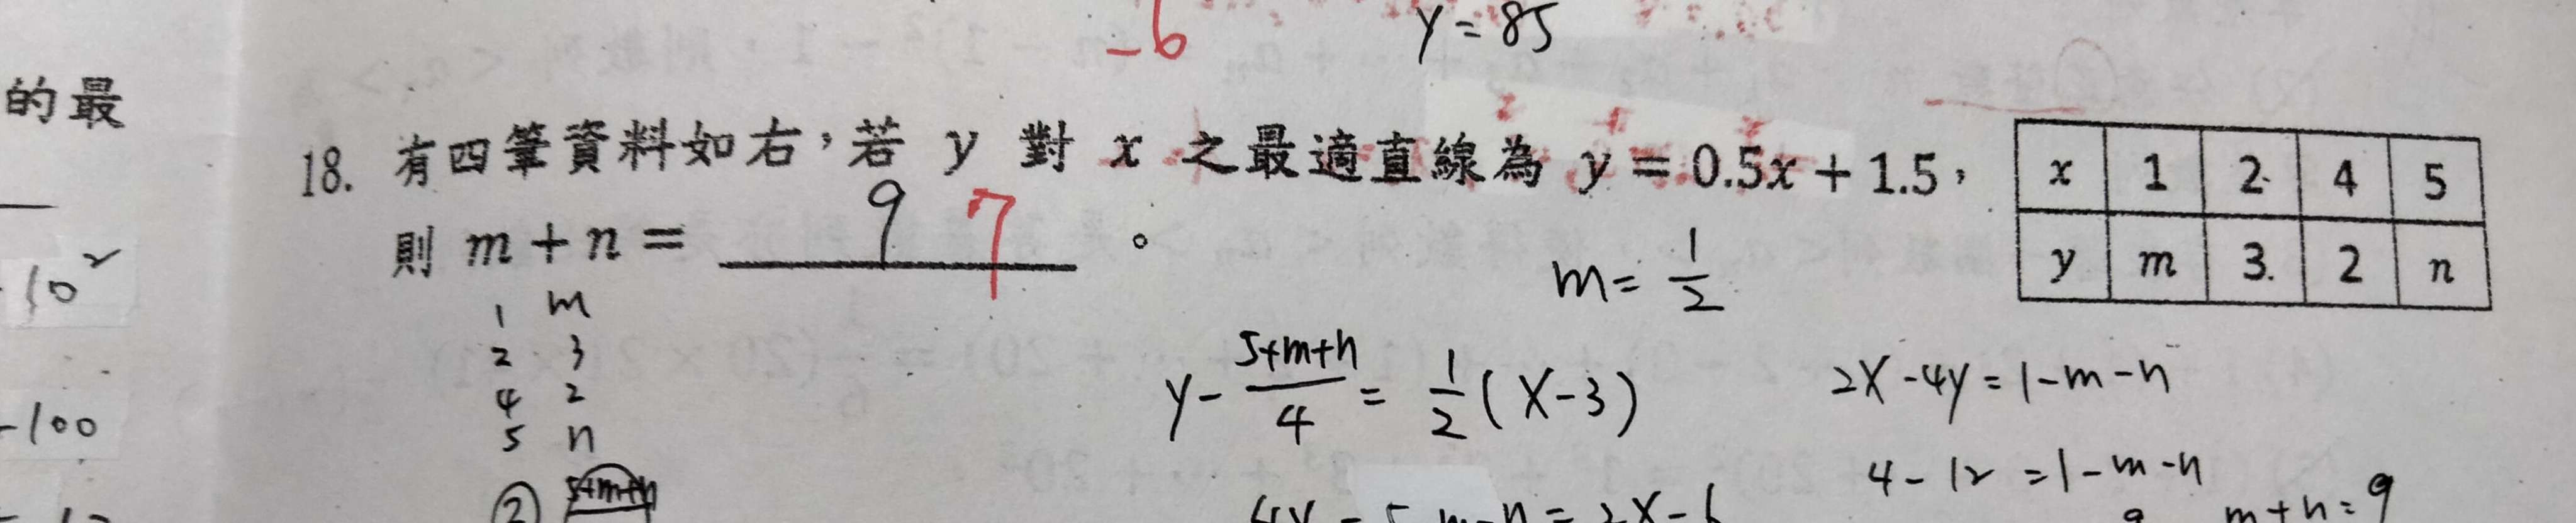 -6
y=85
的最
18. 有四筆資料如右，若 y 對 x 之最適直線為 y = 0.5x + 1.5，
則 m + n = 9 7 。
x 1 2 4 5
y m 3 2 n
10²
-100
1 m
2 3
4 2
5 n
m = 1/2
y - (5+m+n)/4 = 1/2 (x-3)
2x-4y=1-m-n
4-12=1-m-n
m+n=9